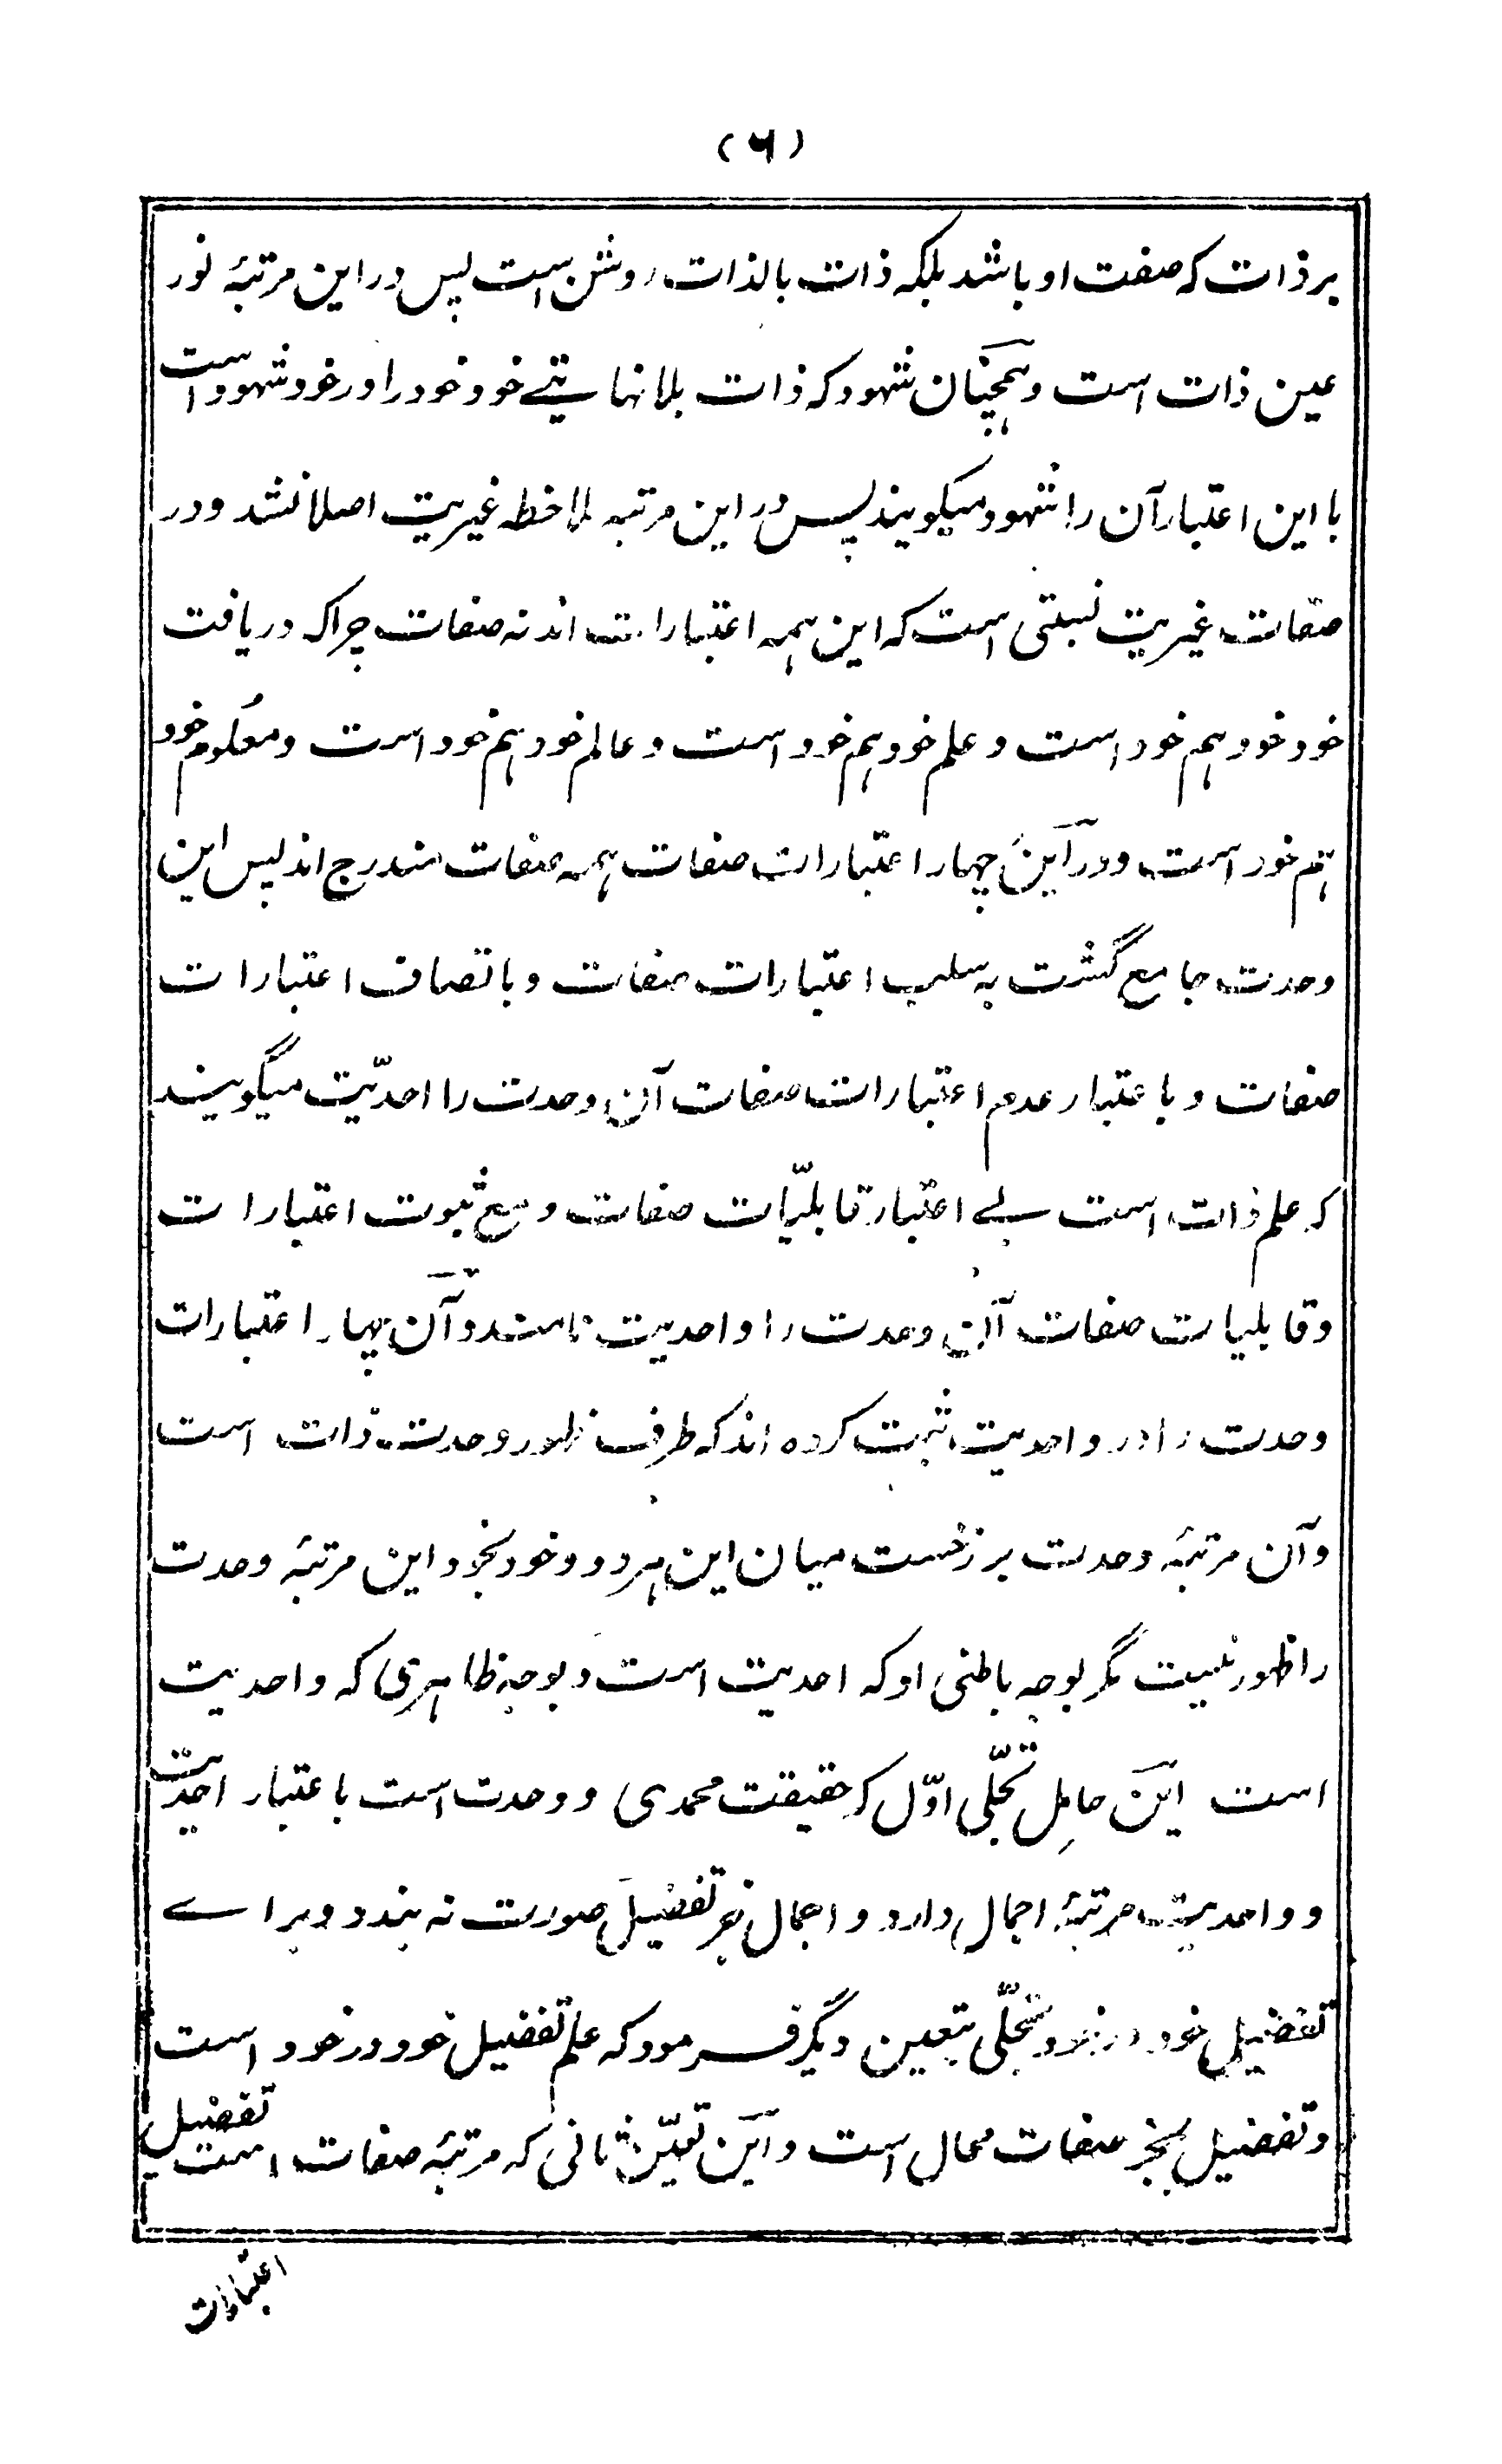 (۶)
بر ذات که صفت او باشد بلکه ذات بالذات روشن است پس در این مرتبۂ نور
عین ذات است و ہمچنان شہود که ذات بلا نہایتے خود خود را در خود شہود است
با این اعتبار آن را شہود میگویند پس در این مرتبہ ملاحظہ غیریت اصلا نشد و در
صفات غیریت نسبتی است که این ہمہ اعتبارات اند نہ صفات چرا که دریافت
خود خود ہم خود است و علم خود ہم خود است و عالم خود ہم خود است و معلوم خود
ہم خود است و در این چہار اعتبارات صفات ہمہ صفات مندرج اند پس این
وحدت جامع گشت بہ سلب اعتبارات صفات و باتصاف اعتبارات
صفات و باعتبار عدم اعتبارات صفات آن وحدت را احدیّت میگویند
کہ علم ذات است بے اعتبار قابلیّات صفات و مع ثبوت اعتبارات
و قابلیات صفات آن وحدت را واحدیت نامند و آن چہار اعتبارات
وحدت را در واحدیت ثبت کرده اند که طرف ظہور وحدت ذات است
و آن مرتبۂ وحدت برزخست میان این ہر دو و خود بخود این مرتبۂ وحدت
را ظہور نیست مگر بوجہ باطنی او که احدیت است و بوجہ ظاہری که واحدیت
است این حامل تجلّی اوّل که حقیقت محمدی و وحدت است باعتبار احدیت
و واحدیت مرتبۂ اجمال دارد و اجمال بغیر تفضیل صورت نہ بندد و براے
تفضیل خود در خود تجلّی بتعین دیگر فرمود که علم تفضیل خود در خود است
و تفضیل بجز صفات محال است و این تعیّن ثانی که مرتبۂ صفات است تفضیل
اعتبارات